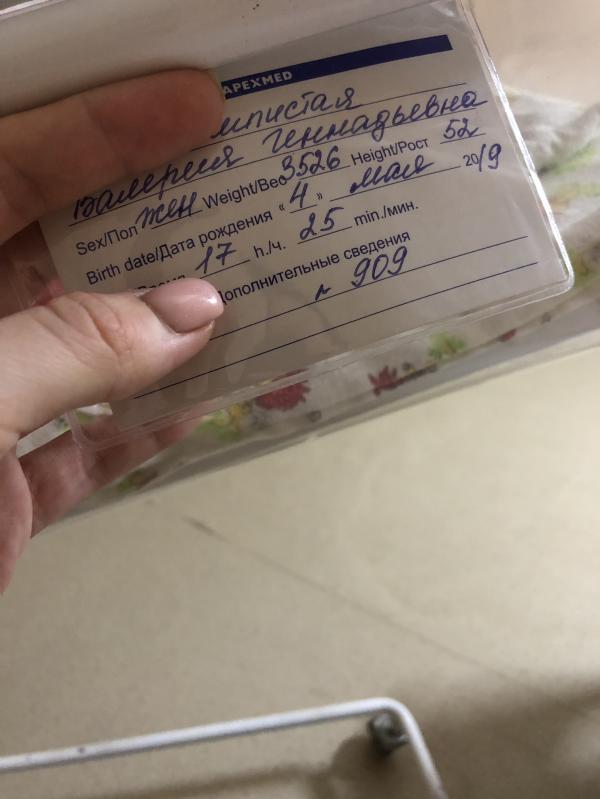 APEXMED
мпистая
Валерия Геннадьевна
Sex/Пол жен Weight/Вес 3526 Height/Рост 52
Birth date/Дата рождения "4" мая 2019
17 h./ч. 25 min./мин.
Дополнительные сведения
909